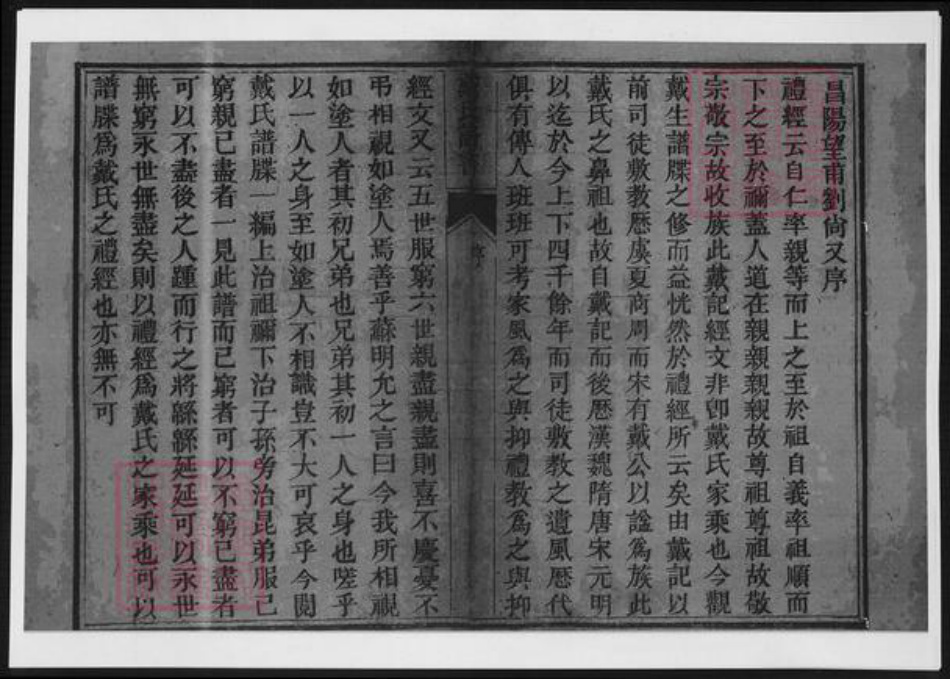 昌陽望甫劉尙又序
禮經云自仁率親等而上之至於祖自義率祖順而
下之至於禰蓋人道在親親親親故尊祖尊祖故敬
宗敬宗故收族此戴記經文非卽戴氏家乘也今觀
戴生譜牒之修而益恍然於禮經所云矣由戴記以
前司徒敷教歷虞夏商周而宋有戴公以謚爲族此
戴氏之鼻祖也故自戴記而後歷漢魏隋唐宋元明
以迄於今上下四千餘年而司徒敷教之遺風歷代
俱有傳人班班可考家風爲之與抑禮教爲之與抑
序
經文又云五世服窮六世親盡親盡則喜不慶憂不
弔相視如塗人焉善乎蘇明允之言曰今我所相視
如塗人者其初兄弟也兄弟其初一人之身也嗟乎
以一人之身至如塗人不相識豈不大可哀乎今閱
戴氏譜牒一編上治祖禰下治子孫旁治昆弟服已
窮親已盡者一見此譜而已窮者可以不窮已盡者
可以不盡後之人踵而行之將緜緜延延可以永世
無窮永世無盡矣則以禮經爲戴氏之家乘也可以
譜牒爲戴氏之禮經也亦無不可